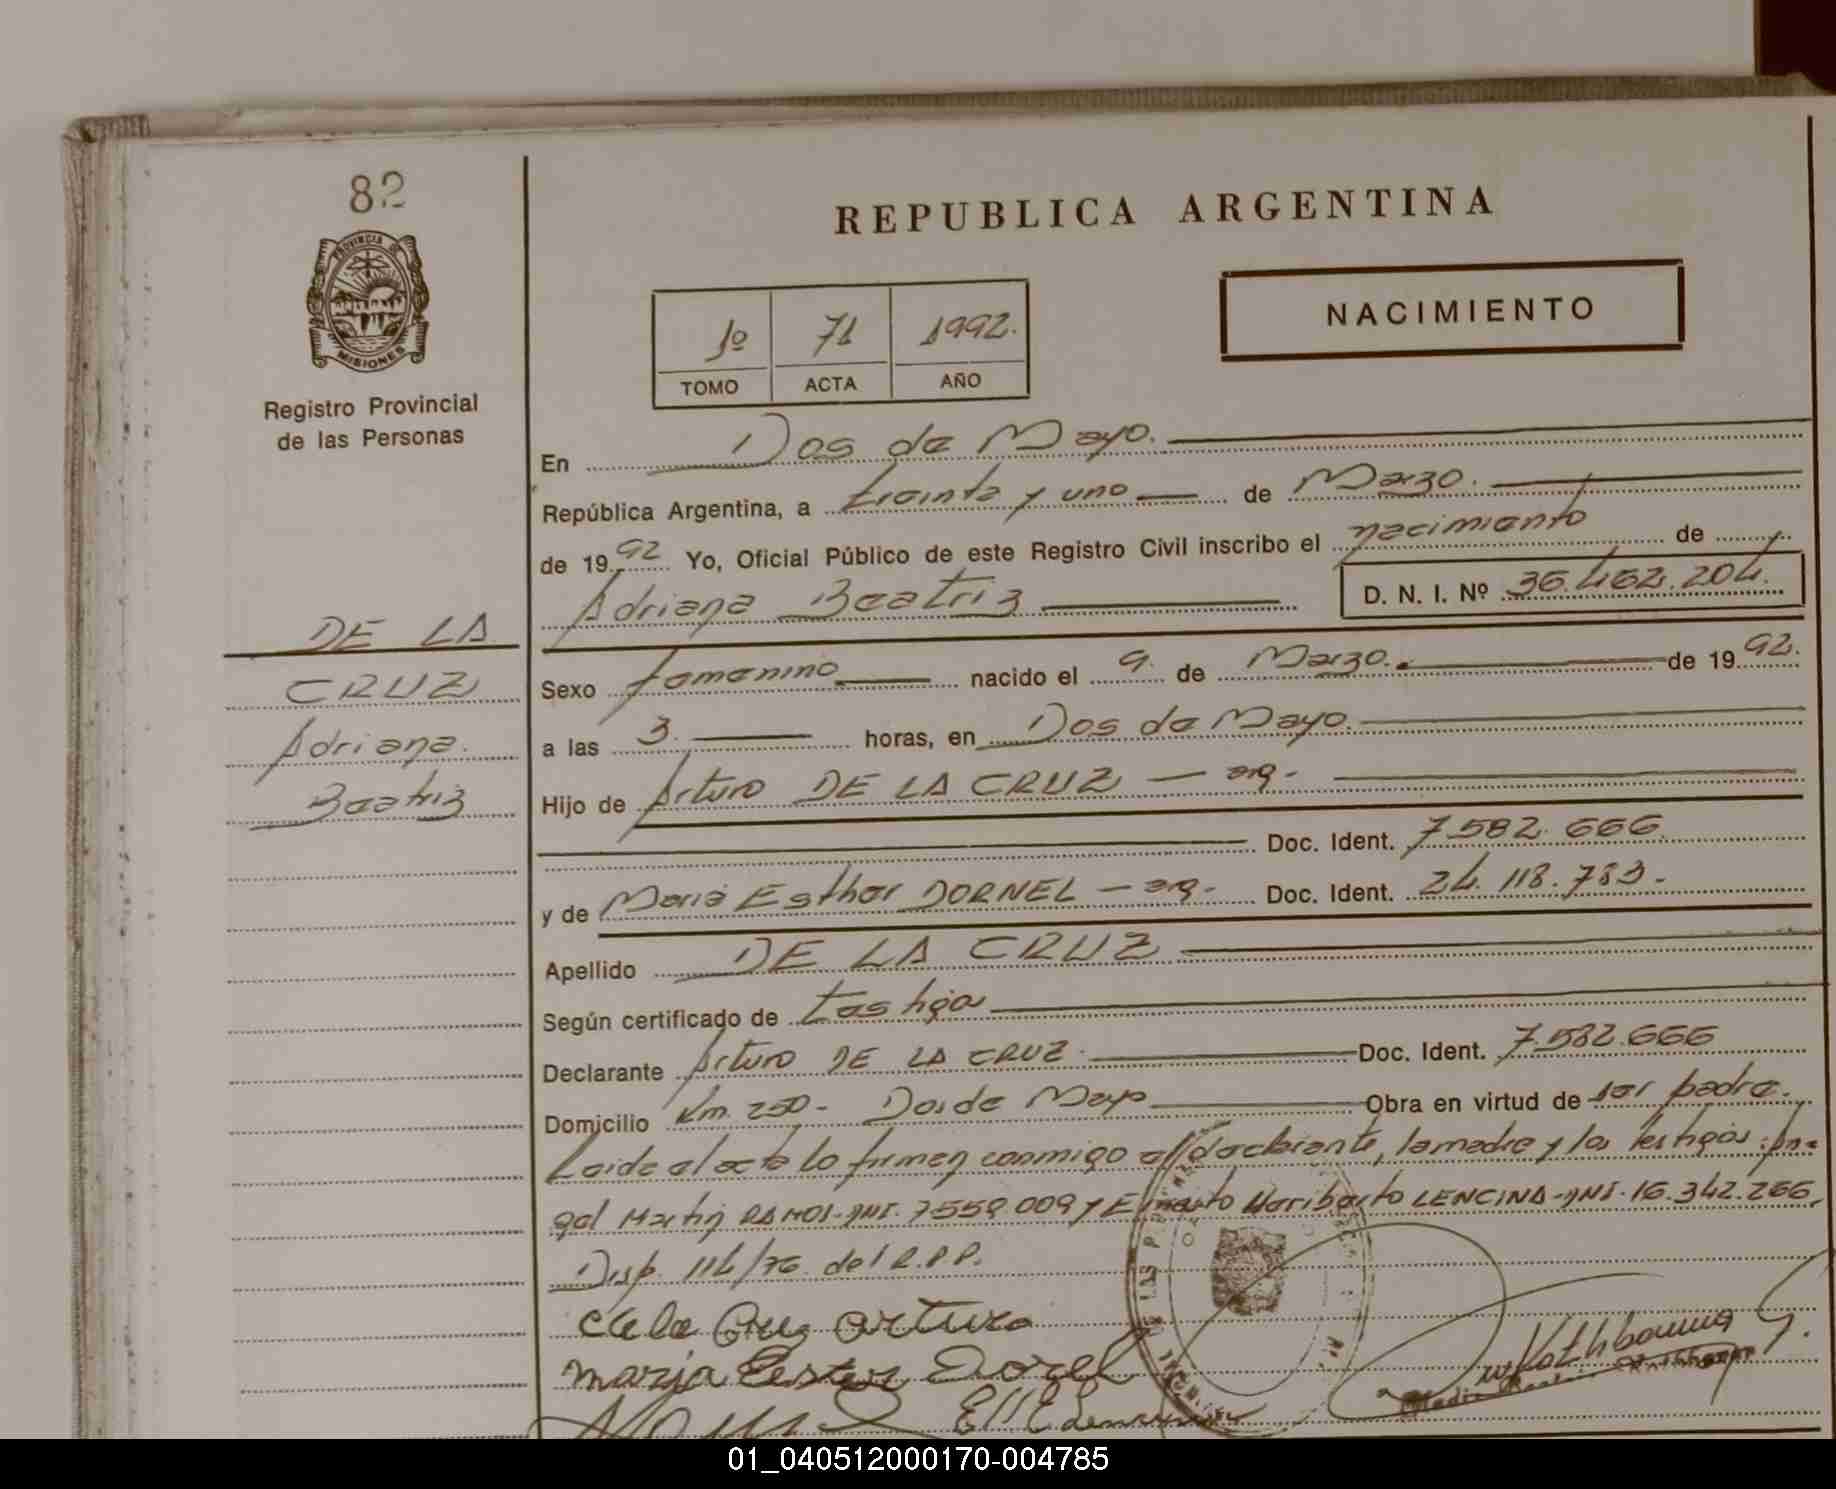 82
PROVINCIA DE
MISIONES
Registro Provincial
de las Personas
REPUBLICA ARGENTINA
NACIMIENTO
1º 71 1992.
TOMO ACTA AÑO
En Dos de Mayo.
República Argentina, a treinta y uno de Marzo.
de 1992 Yo, Oficial Público de este Registro Civil inscribo el nacimiento de
Adriana Beatriz D. N. I. Nº 36.462.204.
DE LA
CRUZ
Adriana
Beatriz
Sexo femenino nacido el 9. de Marzo. de 1992.
a las 3. horas, en Dos de Mayo.
Hijo de Arturo DE LA CRUZ - arg.
Doc. Ident. 7.582.666
y de Maria Esther DORNEL - arg. Doc. Ident. 24.118.783.
Apellido DE LA CRUZ
Según certificado de testigo
Declarante Arturo DE LA CRUZ. Doc. Ident. 7.582.666
Domicilio Km. 250 - Dos de Mayo Obra en virtud de ser padre.
Leida el acta lo firmen conmigo el declarante, la madre y los testigos: An-
gel Martin RAMOS-DNI. 7.559.009 y Ernesto Heriberto LENCINA-DNI-16.342.266,
Disp. 114/76 del R.P.P.
de la Cruz arturo
maria Ester Dorel
01_040512000170-004785